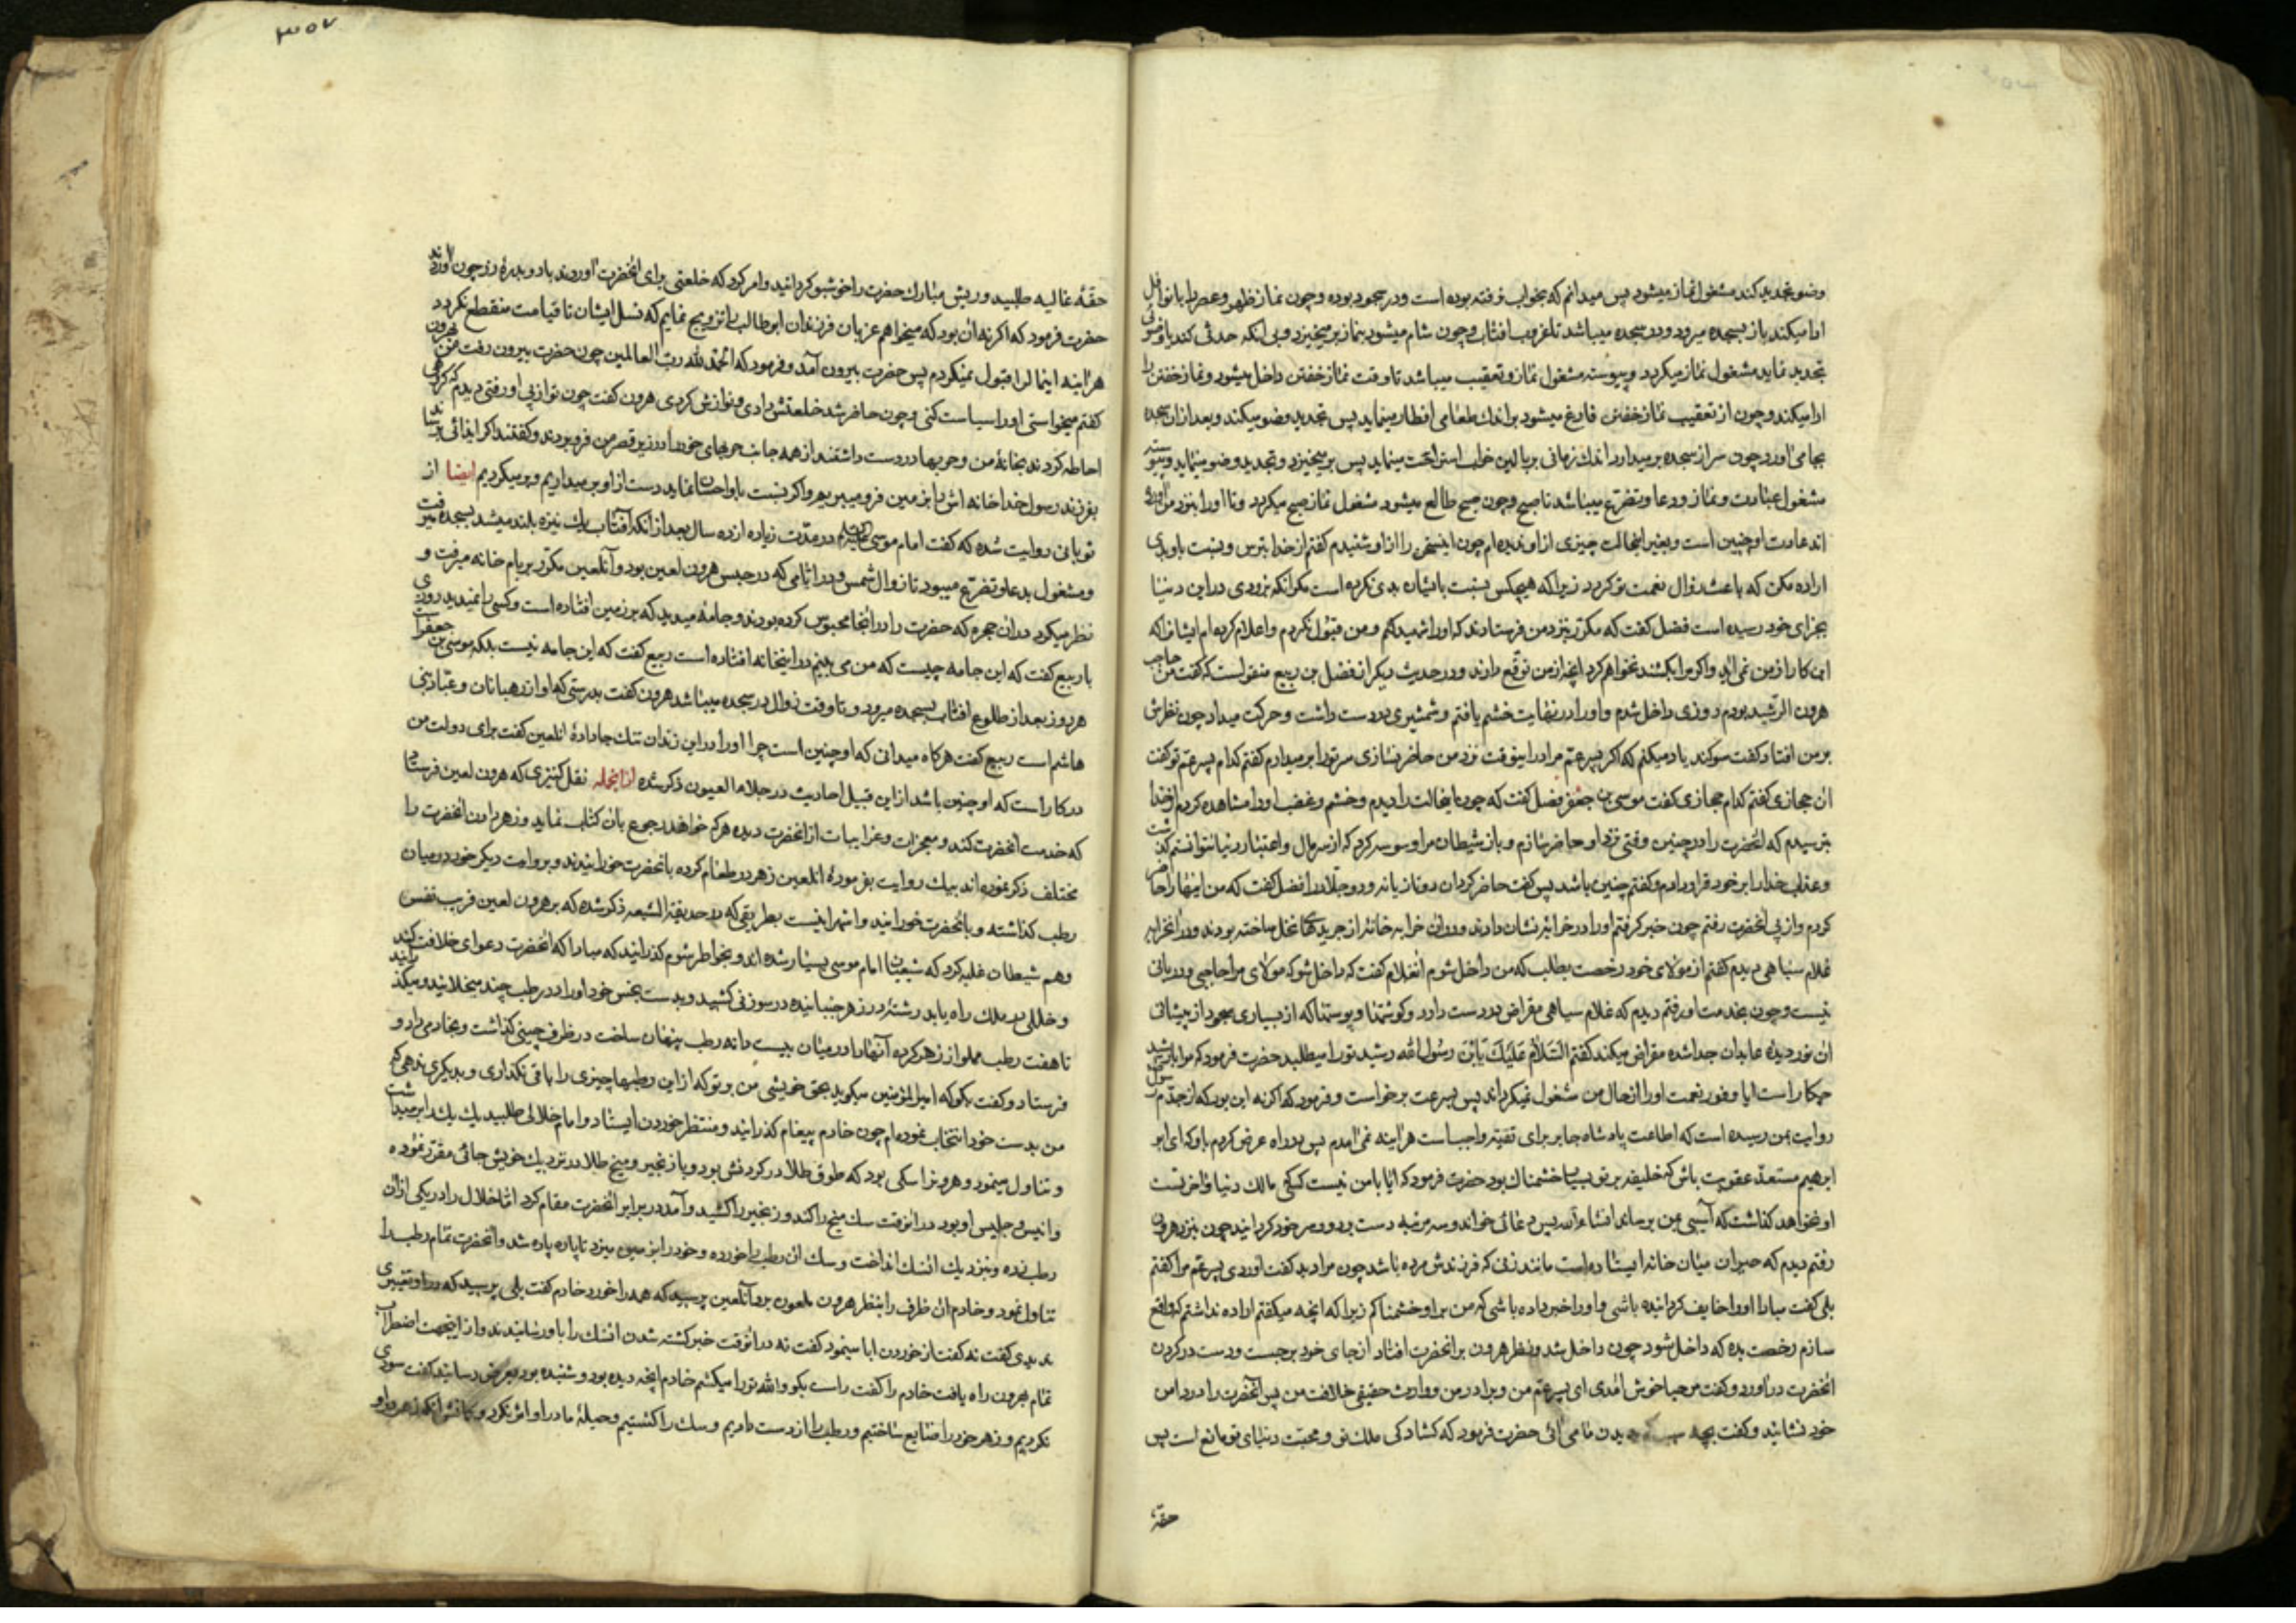 وضو تجدید کند مشغول نماز میشود پس میدانم که بخواب نرفته بوده است ودر سجود بوده و چون نماز ظهر وعصر را با نوافل
ادا میکند باز بسجده میرود ودر سجده میباشد تا غروب افتاب و چون شام میشود بنماز بر میخیزد و بی انکه حدثی کند یا وضوئی
تجدید نماید مشغول نماز میکردد و پیوسته مشغول نماز و تعقیب میباشد تا وقت نماز خفتن داخل میشود و نماز خفتن را
ادا میکند و چون از تعقیب نماز خفتن فارغ میشود بر اندك طعامی افطار مینماید پس تجدید وضو میکند و بعد از ان سجده
بجا می اورد چون سر از سجده بر میدارد اندك زمانی بر بالین خواب استراحت مینماید پس بر میخیزد و تجدید وضو مینماید و پیوسته
مشغول عبادت و نماز ودعا و تضرع میباشد تا صبح و چون صبح طالع میشود مشغول نماز صبح میکردد و تا او را بنزد من آورده
اند عادت او چنین است و بغیر اینحالت چیزی از او ندیده ام چون اینسخن را از او شنیدم کفتم از خدا بترس و نسبت باو بدی
اراده مکن که باعث زوال نعمت تو کردد زیرا که هیچکس نسبت بایشان بدی نکرده است مکر انکه بزودی در این دنیا
بجزای خود رسیده است فضل کفت که مکرر بنزد من فرستادند که او را شهید کنم و من قبول نکردم و اعلام کرده ام ایشانرا که
این کار از من نمی اید و اکر مرا بکشند نخواهم کرد انچه از من توقع دارند ودر حدیث دیکر از فضل بن ربیع منقولست که کفت من حاجب
هرون الرشید بودم روزی داخل شدم و او را در نهایت خشم یافتم و شمشیری در دست داشت و حرکت میداد چون نظرش
بر من افتاد کفت سوکند یاد میکنم که اکر پسر عم مرا در اینوقت نزد من حاضر نسازی سر تو را بر میدارم کفتم کدام پسر عم تو کفت
ان حجازی کفتم کدام حجازی کفت موسی بن جعفر فضل کفت که چون اینحالت را دیدم و خشم و غضب او را مشاهده کردم از خدا
بترسیدم که انحضرت را در چنین وقتی نزد او حاضر سازم و باز شیطان مرا وسوسه کرد که از سر مال و اعتبار دنیا نتوانستم کذشت
و عذاب خدا را بر خود قرار دادم و کفتم چنین باشد پس کفت حاضر کردان دو تازیانه ودو جلاد را فضل کفت که من اینها را حاضر
کردم و از پی انحضرت رفتم چون خبر کرفتم او را در خرابه نشان دادند ودر ان خرابه خانه از جریدهای نخل ساخته بودند ودر انخرابه
غلام سیاهی دیدم کفتم از مولای خود رخصت بطلب که من داخل شوم انغلام کفت که داخل شو که مولای مرا حاجبی و دربانی
نیست و چون بخدمت او رفتم دیدم که غلام سیاهی مقراض در دست دارد و کوشتها و پوستها که از بسیاری سجود از پیشانی
ان نور دیده عابدان جدا شده مقراض میکند کفتم السَّلامُ عَلَیْكَ یَابْنَ رسول الله رشید تو را میطلبد حضرت فرمود که مرا با رشید
چکار است ایا وفور نعمت او را از حال من مشغول نمیکرداند پس بسرعت برخواست و فرمود که اکر نه این بود که از جدم رسول
روایت بمن رسیده است که اطاعت پادشاه جابر برای تقیه واجب است هراینه نمی آمدم پس در راه عرض کردم باو که ای ابو
ابرهیم مستعد عقوبت باش که خلیفه بر تو بسیار خشمناك بود حضرت فرمود که ایا با من نیست کسیکه مالك دنیا و اخرتست
او نخواهد کذاشت که آسیبی بمن برساند انشاء الله پس دعائی خواند و سه مرتبه دست بر دور سر خود کردانید چون بنزد هرون
رفتم دیدم که حیران میان خانه ایستاده است مانند زنی که فرزندش مرده باشد چون مرا دید کفت اوردی پسر عم مرا کفتم
بلی کفت مبادا او را خایف کردانیده باشی و او را خبر داده باشی که من بر او خشمناکم زیرا که انچه میکفتم اراده نداشتم که واقع
سازم رخصت بده که داخل شود چون داخل شد و نظر هرون بر انحضرت افتاد از جای خود برجست و دست در کردن
انحضرت در آورد و کفت مرحبا خوش آمدی ای پسر عم من و برادر من و وارث حقیقی خلافت من پس آنحضرت را در دامن
خود نشانید و کفت بچه سبب بدیدن ما نمی آئی حضرت فرمود که کشادکی ملك تو و محبت دنیای تو مانع است پس
حقهٔ
۳۵۷
حقهٔ غالیه طلبید و ریش مبارك حضرت را خوشبو کردانید و امر کرد که خلعتی برای انحضرت آوردند با دو بدرهٔ زر چون اوردند
حضرت فرمود که اکر نه ان بود که میخواهم عزبان فرزندان ابو طالب را تزویج نمایم که نسل ایشان تا قیامت منقطع نکردد
هراینه اینمال را قبول نمیکردم پس حضرت بیرون آمد و فرمود که الحمد لله رب العالمین چون حضرت بیرون رفت من بهرون
کفتم میخواستی او را سیاست کنی و چون حاضر شد خلعتش دادی و نوازش کردی هرون کفت چون تو از پی او رفتی دیدم که کروهی
احاطه کردند بخانهٔ من و حربها در دست داشتند از همه جانب حربهای خود را در زیر قصر من فرو بردند و کفتند اکر ایذائی برسانی
بفرزند رسول خدا خانه اش را بزمین فرو میبریم و اکر نسبت باو احسان نماید دست از او بر میداریم و بر میکردیم ایضا از
ثوبانی روایت شده که کفت امام موسی در مدت زیاده از ده سال بعد از انکه آفتاب یك نیزه بلند میشد بسجده میرفت
و مشغول بدعا و تضرع میبود تا زوال شمس ودر ایامی که در حبس هرون لعین بود و آنلعین مکرر بر بام خانه میرفت و
نظر میکرد در ان حجره که حضرت را در انجا محبوس کرده بودند و جامهٔ میدید که بر زمین افتاده است و کسی را نمیدید روزی
با ربیع کفت که این جامه چیست که من می بینم در اینخانه افتاده است ربیع کفت که این جامه نیست بلکه موسی بن جعفر است
هر روز بعد از طلوع افتاب بسجده میرود و تا وقت زوال در سجده میباشد هرون کفت بدرستی که او از رهبانان و عباد بنی
هاشم است ربیع کفت هر کاه میدانی که او چنین است چرا او را در این زندان تنك جا دادهٔ انلعین کفت برای دولت من
در کار است که او چنین باشد از این قبیل احادیث در جلاء العیون ذکر شده از انجمله نقل کنیزی که هرون لعین فرستاد
که خدمت انحضرت کند و معجزات و غرایبات از انحضرت دیده هر که خواهد رجوع بان کتاب نماید و زهر دادن انحضرت را
مختلف ذکر نموده اند بیك روایت بفرمودهٔ انلعین زهر در طعام کرده بانحضرت خورانیدند و بروایت دیکر خود در میان
رطب کذاشته و بانحضرت خورانید و اشهر اینست بطریقی که در حدیقة الشیعه ذکر شده که بر هرون لعین فریب نفس
وهم شیطان غلبه کرد که شیعیان امام موسی بسیار شده اند و بخاطر شوم کذرانید که مبادا که انحضرت دعوای خلافت کند
و خللی در ملك راه یابد رشتهٔ در زهر جنبانیده در سوزنی کشید و بدست نحس خود او را در رطب چند میخلانید و میکذرانید
تا هفت رطب مملو از زهر کرده آنها را در میان بیست دانه رطب پنهان ساخت در ظرف چینی کذاشت و بخادمی داد و
فرستاد و کفت بکو که امیر المؤمنین میکوید بحق خویشی من بر تو که از این رطبها چیزی را باقی نکذاری و بدیکری ندهی که
من بدست خود انتخاب نموده ام چون خادم پیغام کذرانید و منتظر خوردن ایستاد و امام خلالی طلبید یك یك را بر میداشت
و تناول مینمود و هرون را سکی بود که طوق طلا در کردنش بود و با زنجیر و میخ طلا در نزدیك خویش جائی مقرر نموده
و انیس و جلیس او بود در انوقت سك میخ را کند و زنجیر را کشید و آمد در برابر انحضرت مقام کرد اتفا خلال را در یکی از ان
رطب زده و بنزدیك انسك انداخت و سك ان رطب را خورده و خود را بزمین میزد تا پاره پاره شد و انحضرت تمام رطب را
تناول نمود و خادم ان ظرف را بنظر هرون ملعون برد آنلعین پرسید که همه را خورد خادم کفت بلی پرسید که در او تغییری
ندیدی کفت نه کفت از خوردن ابا مینمود کفت نه در انوقت خبر کشته شدن انسك را باو رسانیدند و از اینجهت اضطراب
تمام بهرون راه یافت خادم را کفت راست بکو و الله تو را میکشم خادم انچه دیده بود و شنیده بود بعرض رسانید کفت سودی
نکردیم و زهر خود را ضایع ساختیم و رطب را از دست دادیم و سك را کشتیم و حیلهٔ ما در او اثر نکرد و کمانش انکه زهر در او